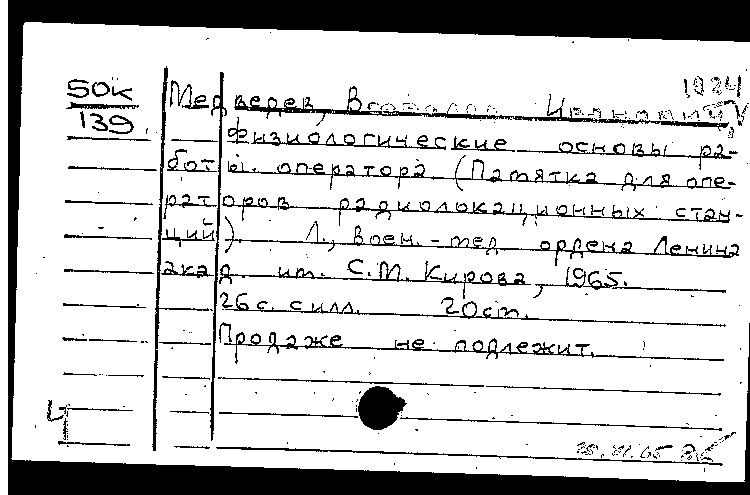 1924
50к
139
Медведев, Всеволод Иванович
Физиологические основы ра-
боты оператора (Памятка для опе-
раторов радиолокационных стан-
ций). Л., Воен.-мед. ордена Ленина
акад. им. С.М. Кирова, 1965.
26 с. с илл. 20 см.
Продаже не подлежит.
Ц